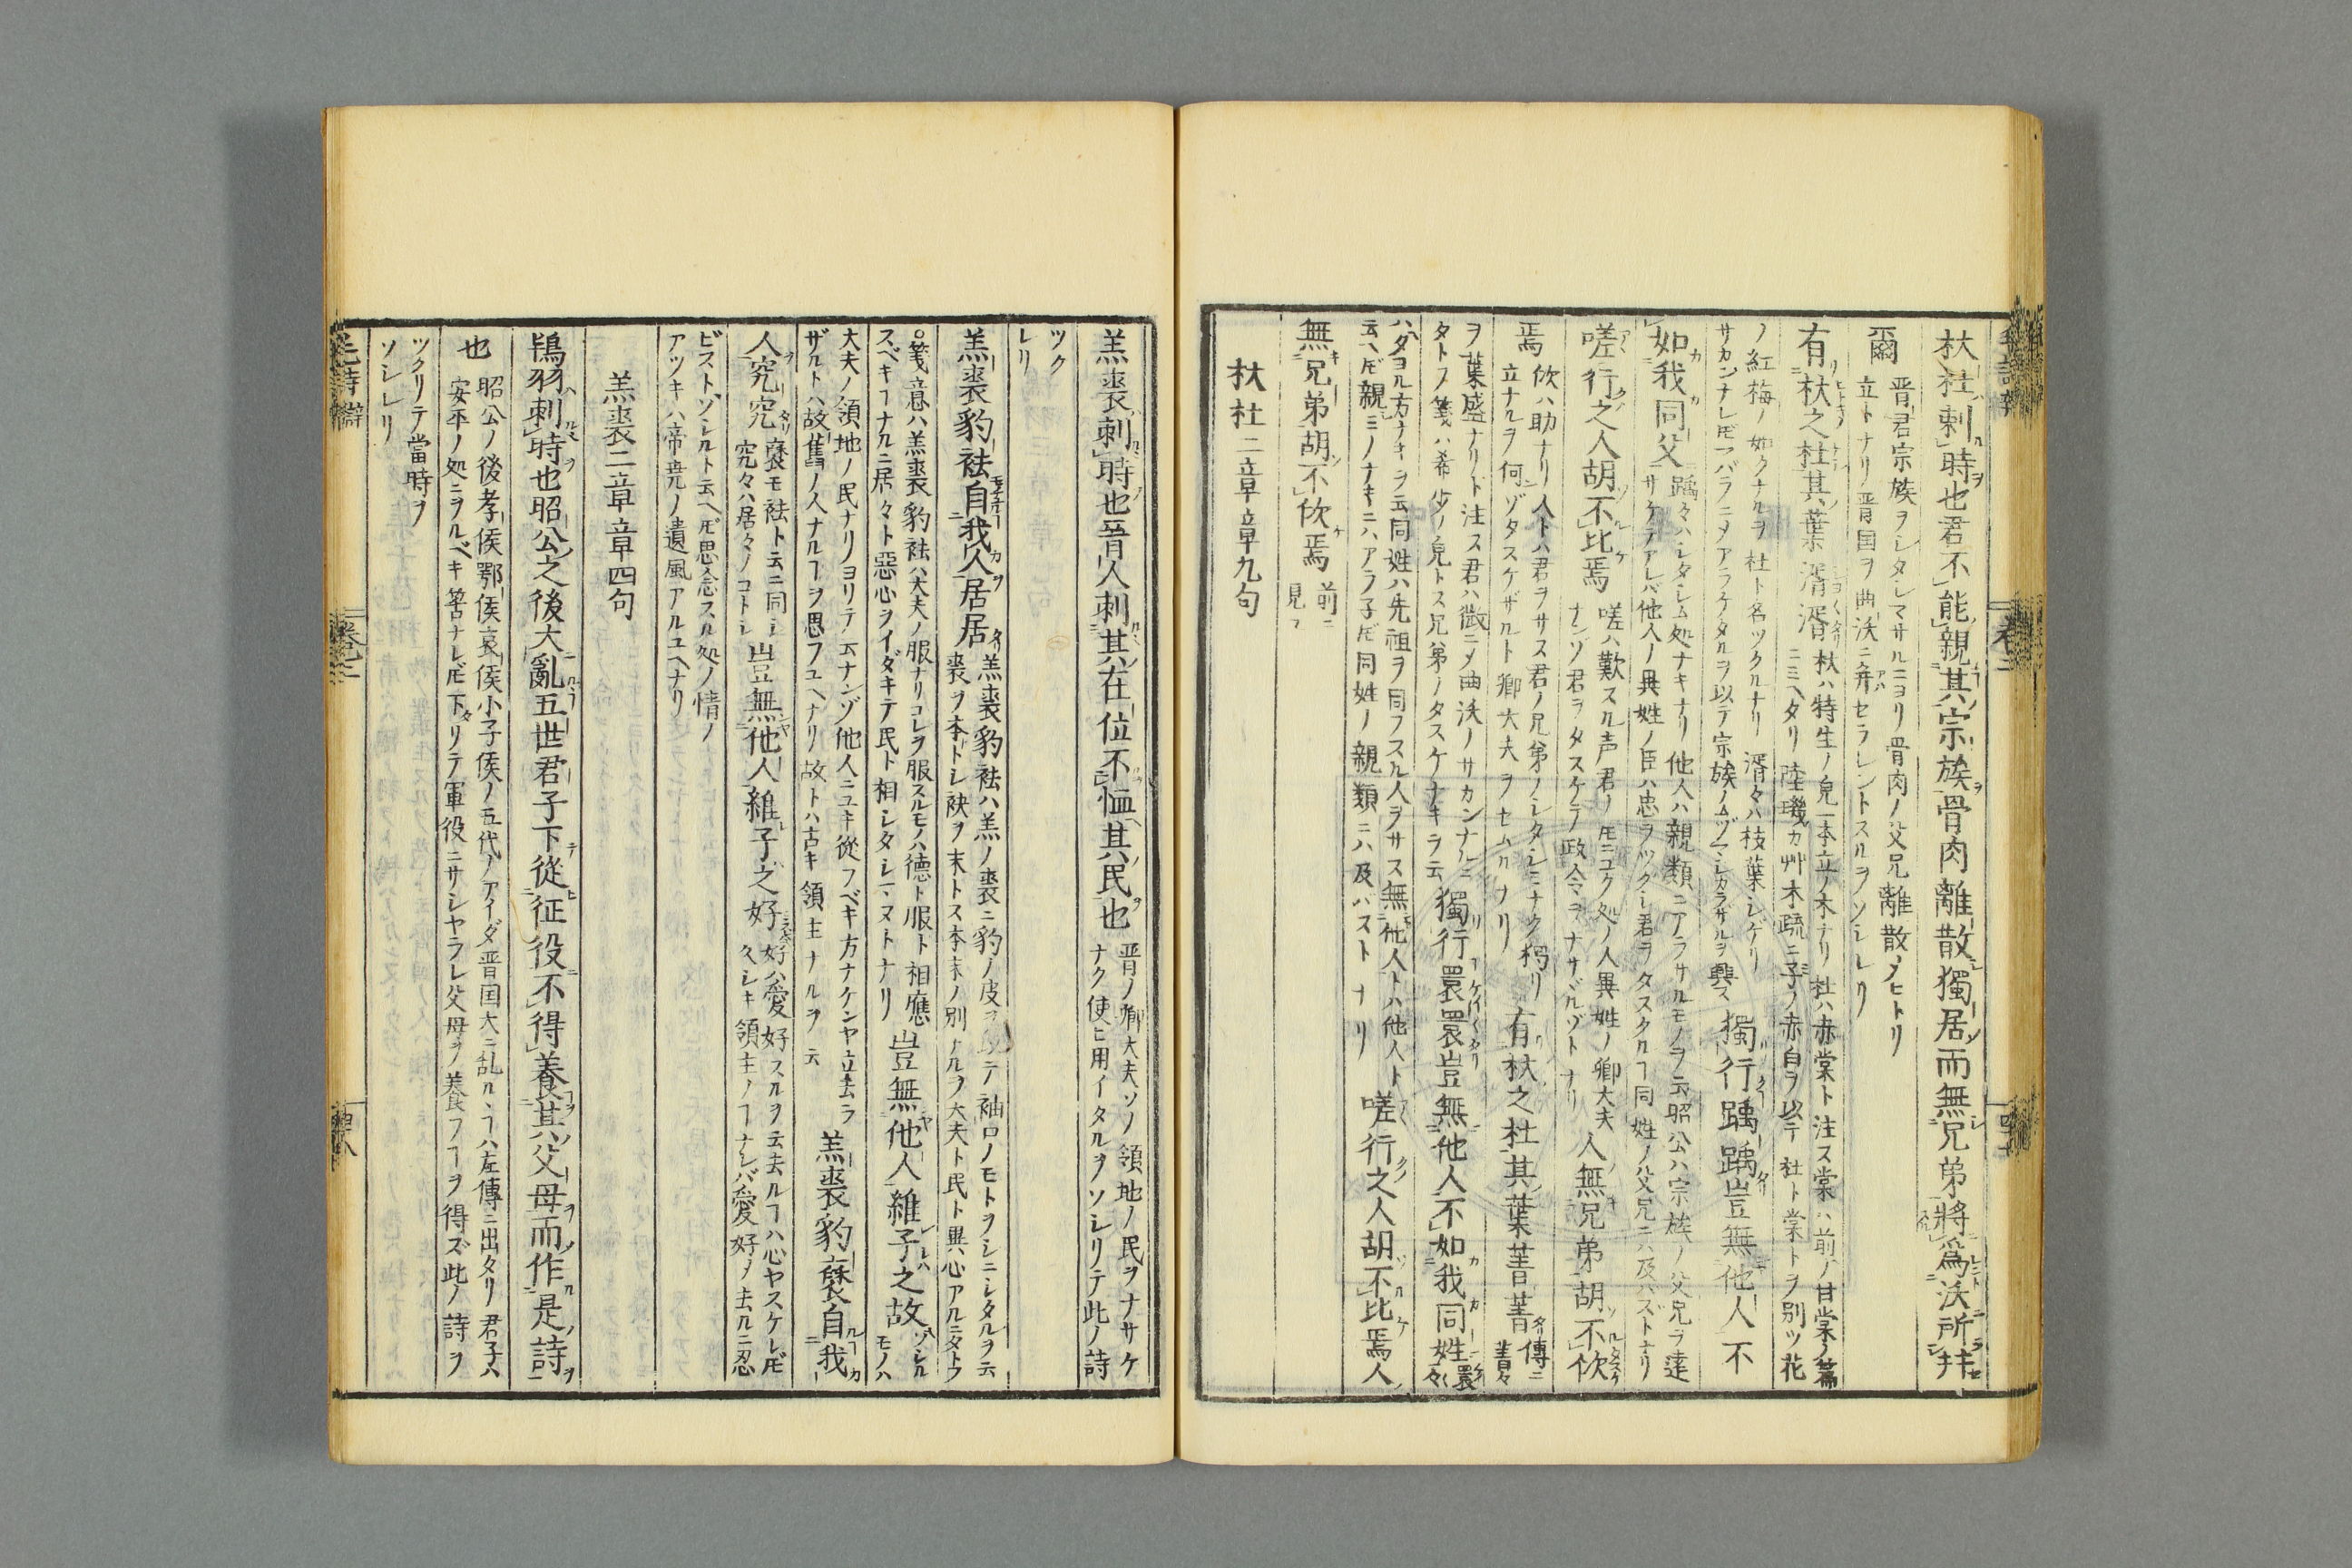 杕杜刺時也君不能親其宗族骨肉離散獨居而無兄弟將爲沃所幷
爾
晋君宗族ヲシタシマサルニヨリ骨肉ノ父兄離散メヒトリ
立トナリ晋国ヲ曲沃ニ幷セラレントスルヲソシレリ
有杕之杜其葉湑湑
杕ハ特生ノ皃一本立ノ木ナリ杜ハ赤棠ト注ス棠ハ前ノ甘棠ノ篇
ニミヘタリ陸璣カ艸木疏ニ子ノ赤白ヲ以テ杜ト棠トヲ別ツ花
ノ紅梅ノ如クナルヲ杜ト名ツクルナリ湑々ハ枝葉シゲリ
サカンナレ𪜈マバラニメアラケタルヲ以テ宗族ノムヅマシカラサルヲ興ス
獨行踽踽豈無他人不
如我同父
踽々ハシタシム処ナキナリ他人ハ親類ニアラサルモノヲ云昭公ハ宗族ノ父兄ヲ遠
サケテアレバ他人ノ異姓ノ臣ハ忠ヲツクシ君ヲタスクルヿ同姓ノ父兄ニハ及ハズトナリ
嗟行之人胡不比焉
嗟ハ歎スル声君ノ𪜈ニユク処ノ人異姓ノ卿大夫
ナンゾ君ヲタスケテ政令ヲナサヾルゾトナリ
人無兄弟胡不佽
焉
佽ハ助ナリ人トハ君ヲサス君ノ兄弟ノシタシミナク獨リ
立ナルヲ何ゾタスケザルト卿大夫ヲセムルナリ
有杕之杜其葉菁菁
傳ニ
菁々
ヲ葉盛ナリト注ス君ハ微ニメ曲沃ノサカンナルニ
タトフ箋ハ希少ノ皃トス兄弟ノタスケナキヲ云
獨行睘睘豈無他人不如我同姓
睘
々
ハタヨル方ナキヲ云同姓ハ先祖ヲ同フスル人ヲサス無他人トハ他人ト
云ヘ𪜈親ミノナキニハアラ子𪜈同姓ノ親類ニハ及バストナリ
嗟行之人胡不比焉人
無兄弟胡不佽焉
前ニ
見ユ
杕杜二章章九句
羔裘刺時也晋人刺其在位不恤其民也
晋ノ卿大夫ソノ領地ノ民ヲナサケ
ナク使ヒ用イタルヲソシリテ此ノ詩
ツク
レリ
羔裘豹袪自我人居居
羔裘豹袪ハ羔ノ裘ニ豹ノ皮ヲ以テ袖口ノモトヲシニシタルヲ云
裘ヲ本トシ袂ヲ末トス本末ノ別ナルヲ大夫ト民ト異心アルニタトフ
○箋意ハ羔裘豹袪ハ大夫ノ服ナリコレヲ服スルモノハ德ト服ト相應
スベキヿナルニ居々ト惡心ヲイダキテ民ト相シタシマヌトナリ
豈無他人維子之故
ソシル
モノハ
大夫ノ領地ノ民ナリノヨリテ云ナンゾ他人ニユキ從フベキ方ナケンヤ立去ラ
ザルトハ故舊ノ人ナルヿヲ思フユヘナリ故トハ古キ領主ナルヲ云
羔裘豹褎自我
人究究
褎モ袪ト云ニ同シ
究々ハ居々ノコトシ
豈無他人維子之好
好ハ愛好スルヲ云去ルヿハ心ヤスケレ𪜈
久シキ領主ノヿナレバ愛好メ去ルニ忍
ビストソシルト云ヘ𪜈思念スル処ノ情ノ
アツキハ帝堯ノ遺風アルユヘナリ
羔裘二章章四句
鴇羽刺時也昭公之後大亂五世君子下從征役不得養其父母而作是詩
也
昭公ノ後孝侯鄂侯哀侯小子侯ノ五代ノアイダ晋国大ニ乱ルヽヿハ左傳ニ出タリ君子ハ
安平ノ処ニヲルベキ筈ナレ𪜈下リテ軍役ニサシヤラレ父母ヲ養フヿヲ得ズ此ノ詩ヲ
ツクリテ當時ヲ
ソシレリ
毛詩辯
卷之三
四十八